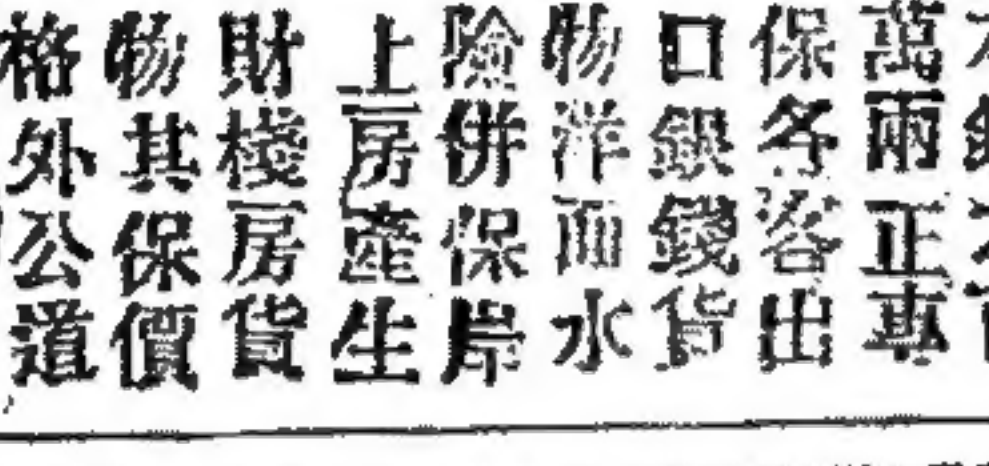 萬兩正專
保各咨出
口銀錢貨
物洋面水
險併保岸
上房產生
財棧房貨
物其保價
格外公道